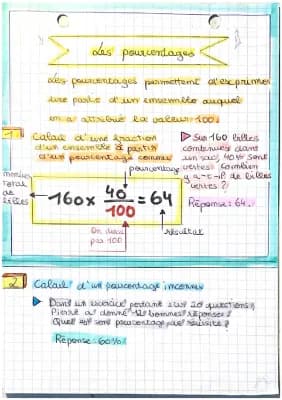 Les pourcentages
Les pourcentages permettent d'exprimer
une partie d'un ensemble auquel
on a attribué la valeur 100.
1 Calcul d'une fraction
d'un ensemble à partir
d'un pourcentage connu
▶ Sur 160 billes
contenues dans
un sac, 40% sont
vertes. Combien
y a-t-il de billes
vertes ?
Réponse : 64.
pourcentage
nombre
total
de
billes
160 × 40/100 = 64
On divise
par 100
résultat
2 Calcul d'un pourcentage inconnu
▶ Dans un exercice portant sur 20 questions,
Pierre a donné 12 bonnes réponses.
Quel est son pourcentage de réussite ?
Réponse : 60%